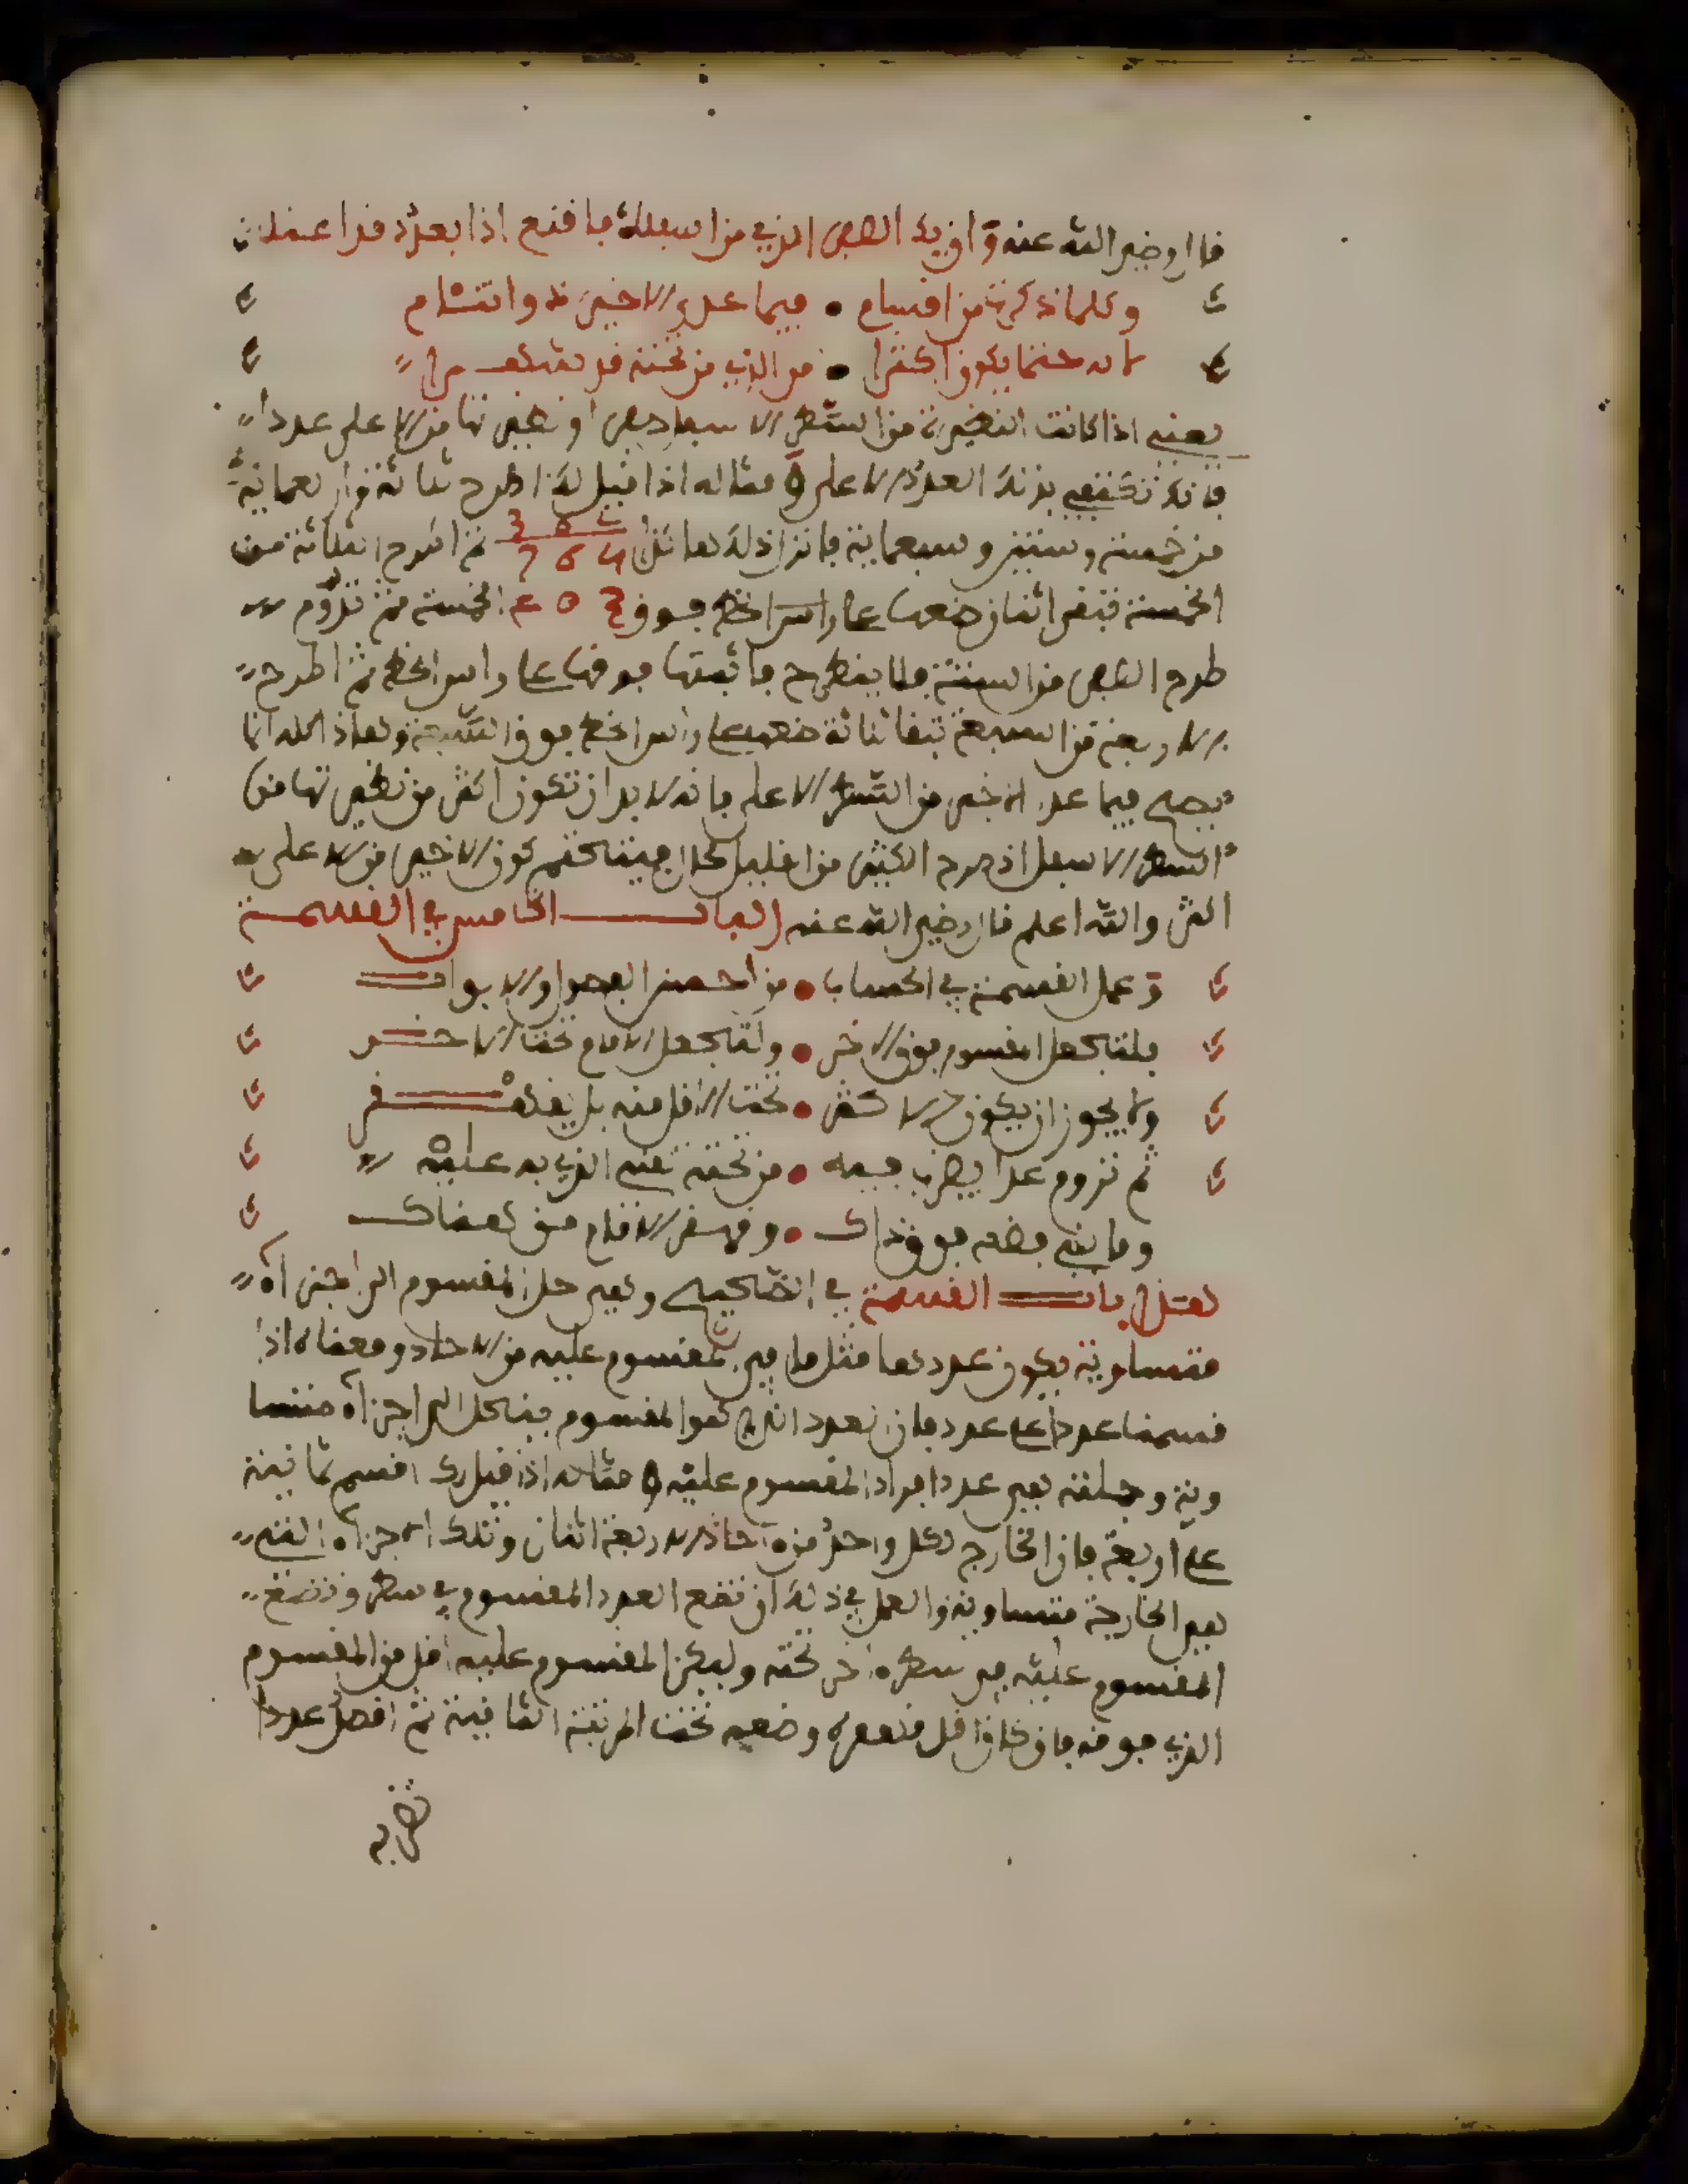 قال رضي الله عنه وان يك الصفر الذي من اسفله فاقنع اذا بعدد قد اعتمله
وكلما ذكرته من اقسام • فيما عدى الاخير ذو انتظام
لانه حتما يكون اكثرا • من الذي من تحته قد
يعني اذا كانت النضيرة من السطر الاسفل صفرا ونظيرتها من الاعلى عددا
فانك تكتفي بذلك العدد الاعلى ه مثاله اذا قيل لك اطرح ثلاثة واربعمائة
من خمسة وستين وسبعمائة فانزل ذلك هاكذا ثم اطرح الثلاثة من
الخمسة فتبقى اثنان ضعها على راس الخط فوق الخمسة ثم تروم
طرح الصفر من الستة فلا ينطرح فاثبتها فوقها على راس الخط ثم اطرح
الاربعة من السبعة تبقا ثلاثة ضعها على راس الخط فوق السبعة وهاذا كله انما
يصح فيما عدا الاخير من السطر الاعلى فانه لا بد ان تكون اكثر من نظيرتها من
السطر الاسفل اذ طرح الكثير من القليل محال فيتحتم كون الاخير من الاعلى
اكثر والله اعلم قال رضي الله عنه الباب الخامس في القسمة
وعمل القسمة في الحساب • من احسن الفصول والابواب
فلتجعل المقسوم فوق الاخر • ولتجعل الامام تحت الاخر
ولا يجوز ان يكون الاكثر • تحت الاقل منه بل يقهقر
ثم تروم عددا يضرب فيه • من تحته تفني الذي به عليه
وما بقي فضعه فوق ذاك • وقهقر الاقدام من هناك
هذا باب القسمة في الصحيح وهي حل المقسوم الى اجزاء
متساوية يكون عددها مثل ما في المقسوم عليه من الاحاد ومعناه اذا
قسمنا عددا على عدد فان العدد الذي هو المقسوم ينحل الى اجزاء متسا
وية وجملته هي عدد افراد المقسوم عليه ه مثاله اذا قيل لك اقسم ثمانية
على اربعة فان الخارج لكل واحد من احاد الاربعة اثنان وتلك الاجزاء التي
هي الخارجة متساوية والعمل في ذلك ان تضع العدد المقسوم في سطر وتضع
المقسوم عليه في سطر اخر تحته وليكن المقسوم عليه اقل من المقسوم
الذي فوقه فان كان اقل فقهقره وضعه تحت المرتبة الثانية ثم اطلب عددا
تضربه